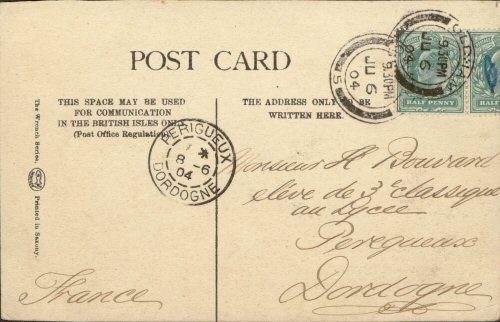 POST CARD
THIS SPACE MAY BE USED
FOR COMMUNICATION
IN THE BRITISH ISLES ONLY
(Post Office Regulation)
THE ADDRESS ONLY BE
WRITTEN HERE.
OLDHAM
9.30PM
JU 6
04
9.30PM
JU 6
04
HALF PENNY
HALF PENNY
PERIGUEUX
8 -6
04
DORDOGNE
The Wrench Series.
Printed in Saxony.
Monsieur H Bouvard
elève de 3e classique
au Lycée
Perequeux
Dordogne
France